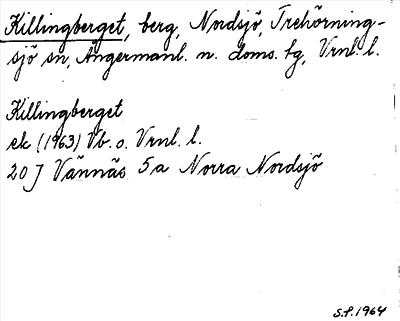 Killingberget, berg, Nordsjö, Trehörning-
sjö sn, Ångermanl. n. doms. tg, Vrnl. l.
Killingberget
ek (1963) Vb. o. Vrnl. l.
20 J Vännäs 5a Norra Nordsjö
S.F. 1964